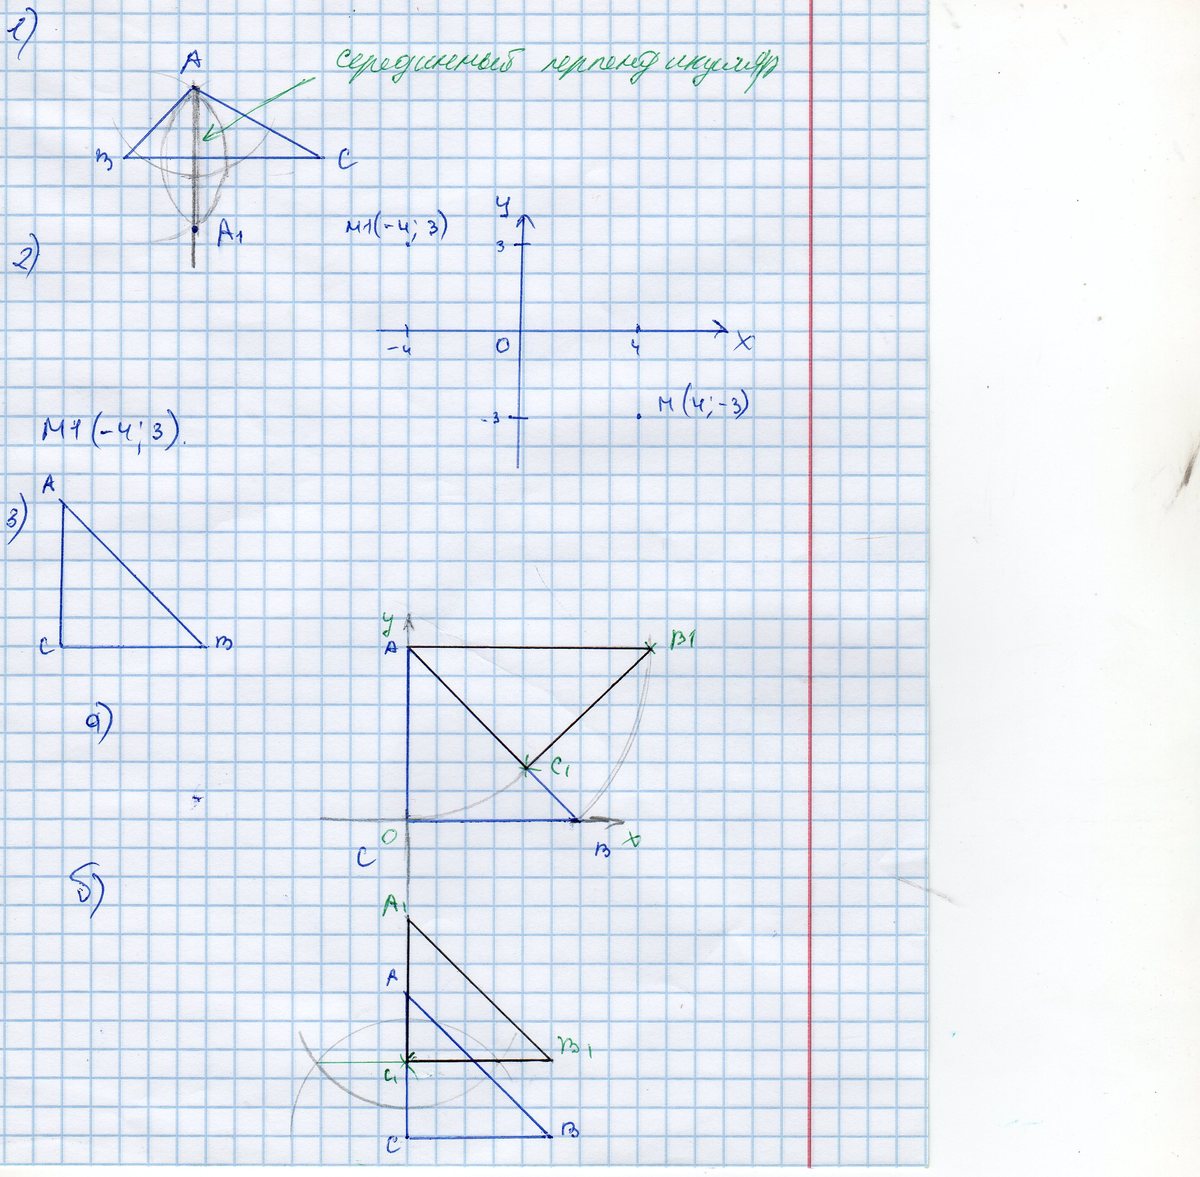 1)
серединный перпендикуляр
A
B
C
A1
2)
y
M1(-4; 3)
3
-4
O
4
X
-3
M(4;-3)
M1(-4; 3).
3)
A
C
B
y
A
B1
а)
C1
O
x
C
B
б)
A1
A
B1
C1
C
B